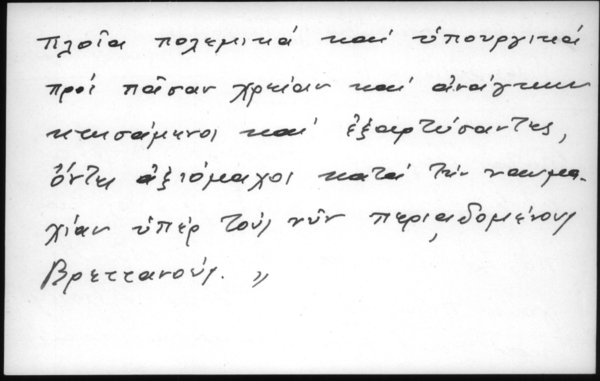 πλοῖα πολεμικά καί ὑπουργικά
πρός πᾶσαν χρείαν καί ἀνάγκην
κτησάμενοι καί ἐξαρτύσαντες,
ὄντες ἀξιόμαχοι κατά τήν ναυμα-
χίαν ὑπέρ τούς νῦν περιᾳδομένους
Βρεττανούς. »